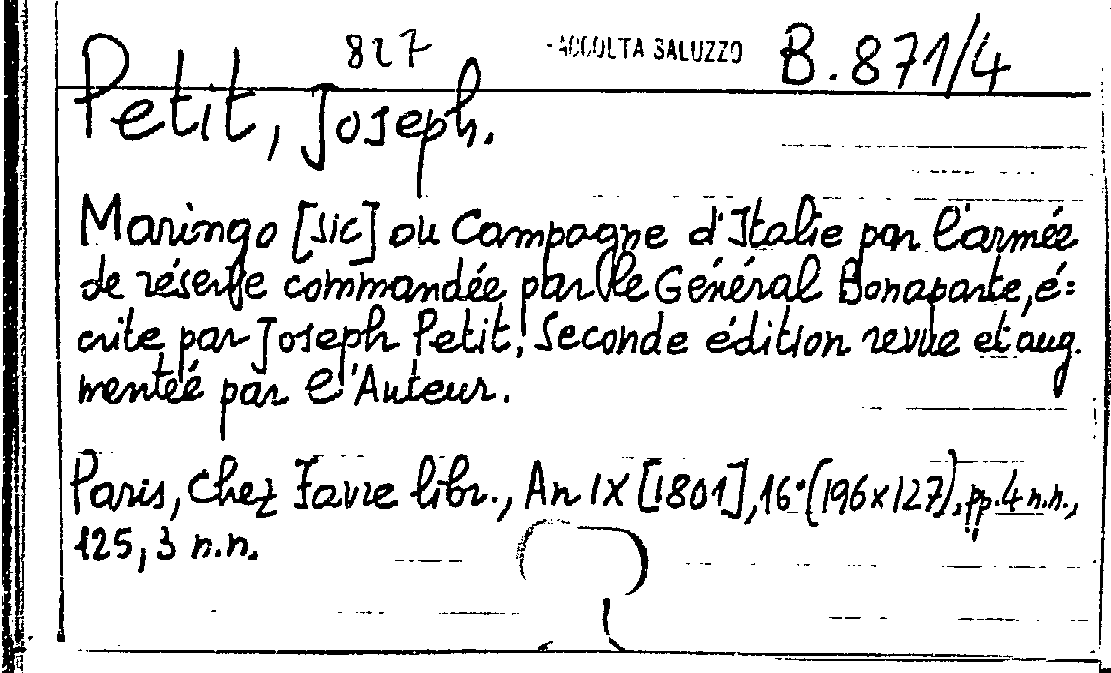 827 RACCOLTA SALUZZO B.871/4
Petit, Joseph.
Maringo [sic] ou Campagne d'Italie par l'armée
de réserve commandée par le Général Bonaparte, é=
crite par Joseph Petit. Seconde édition revue et aug.
mentée par l'Auteur.
Paris, chez Favre libr., An IX [1801], 16° (196x127), pp. 4 n.n.,
125, 3 n.n.